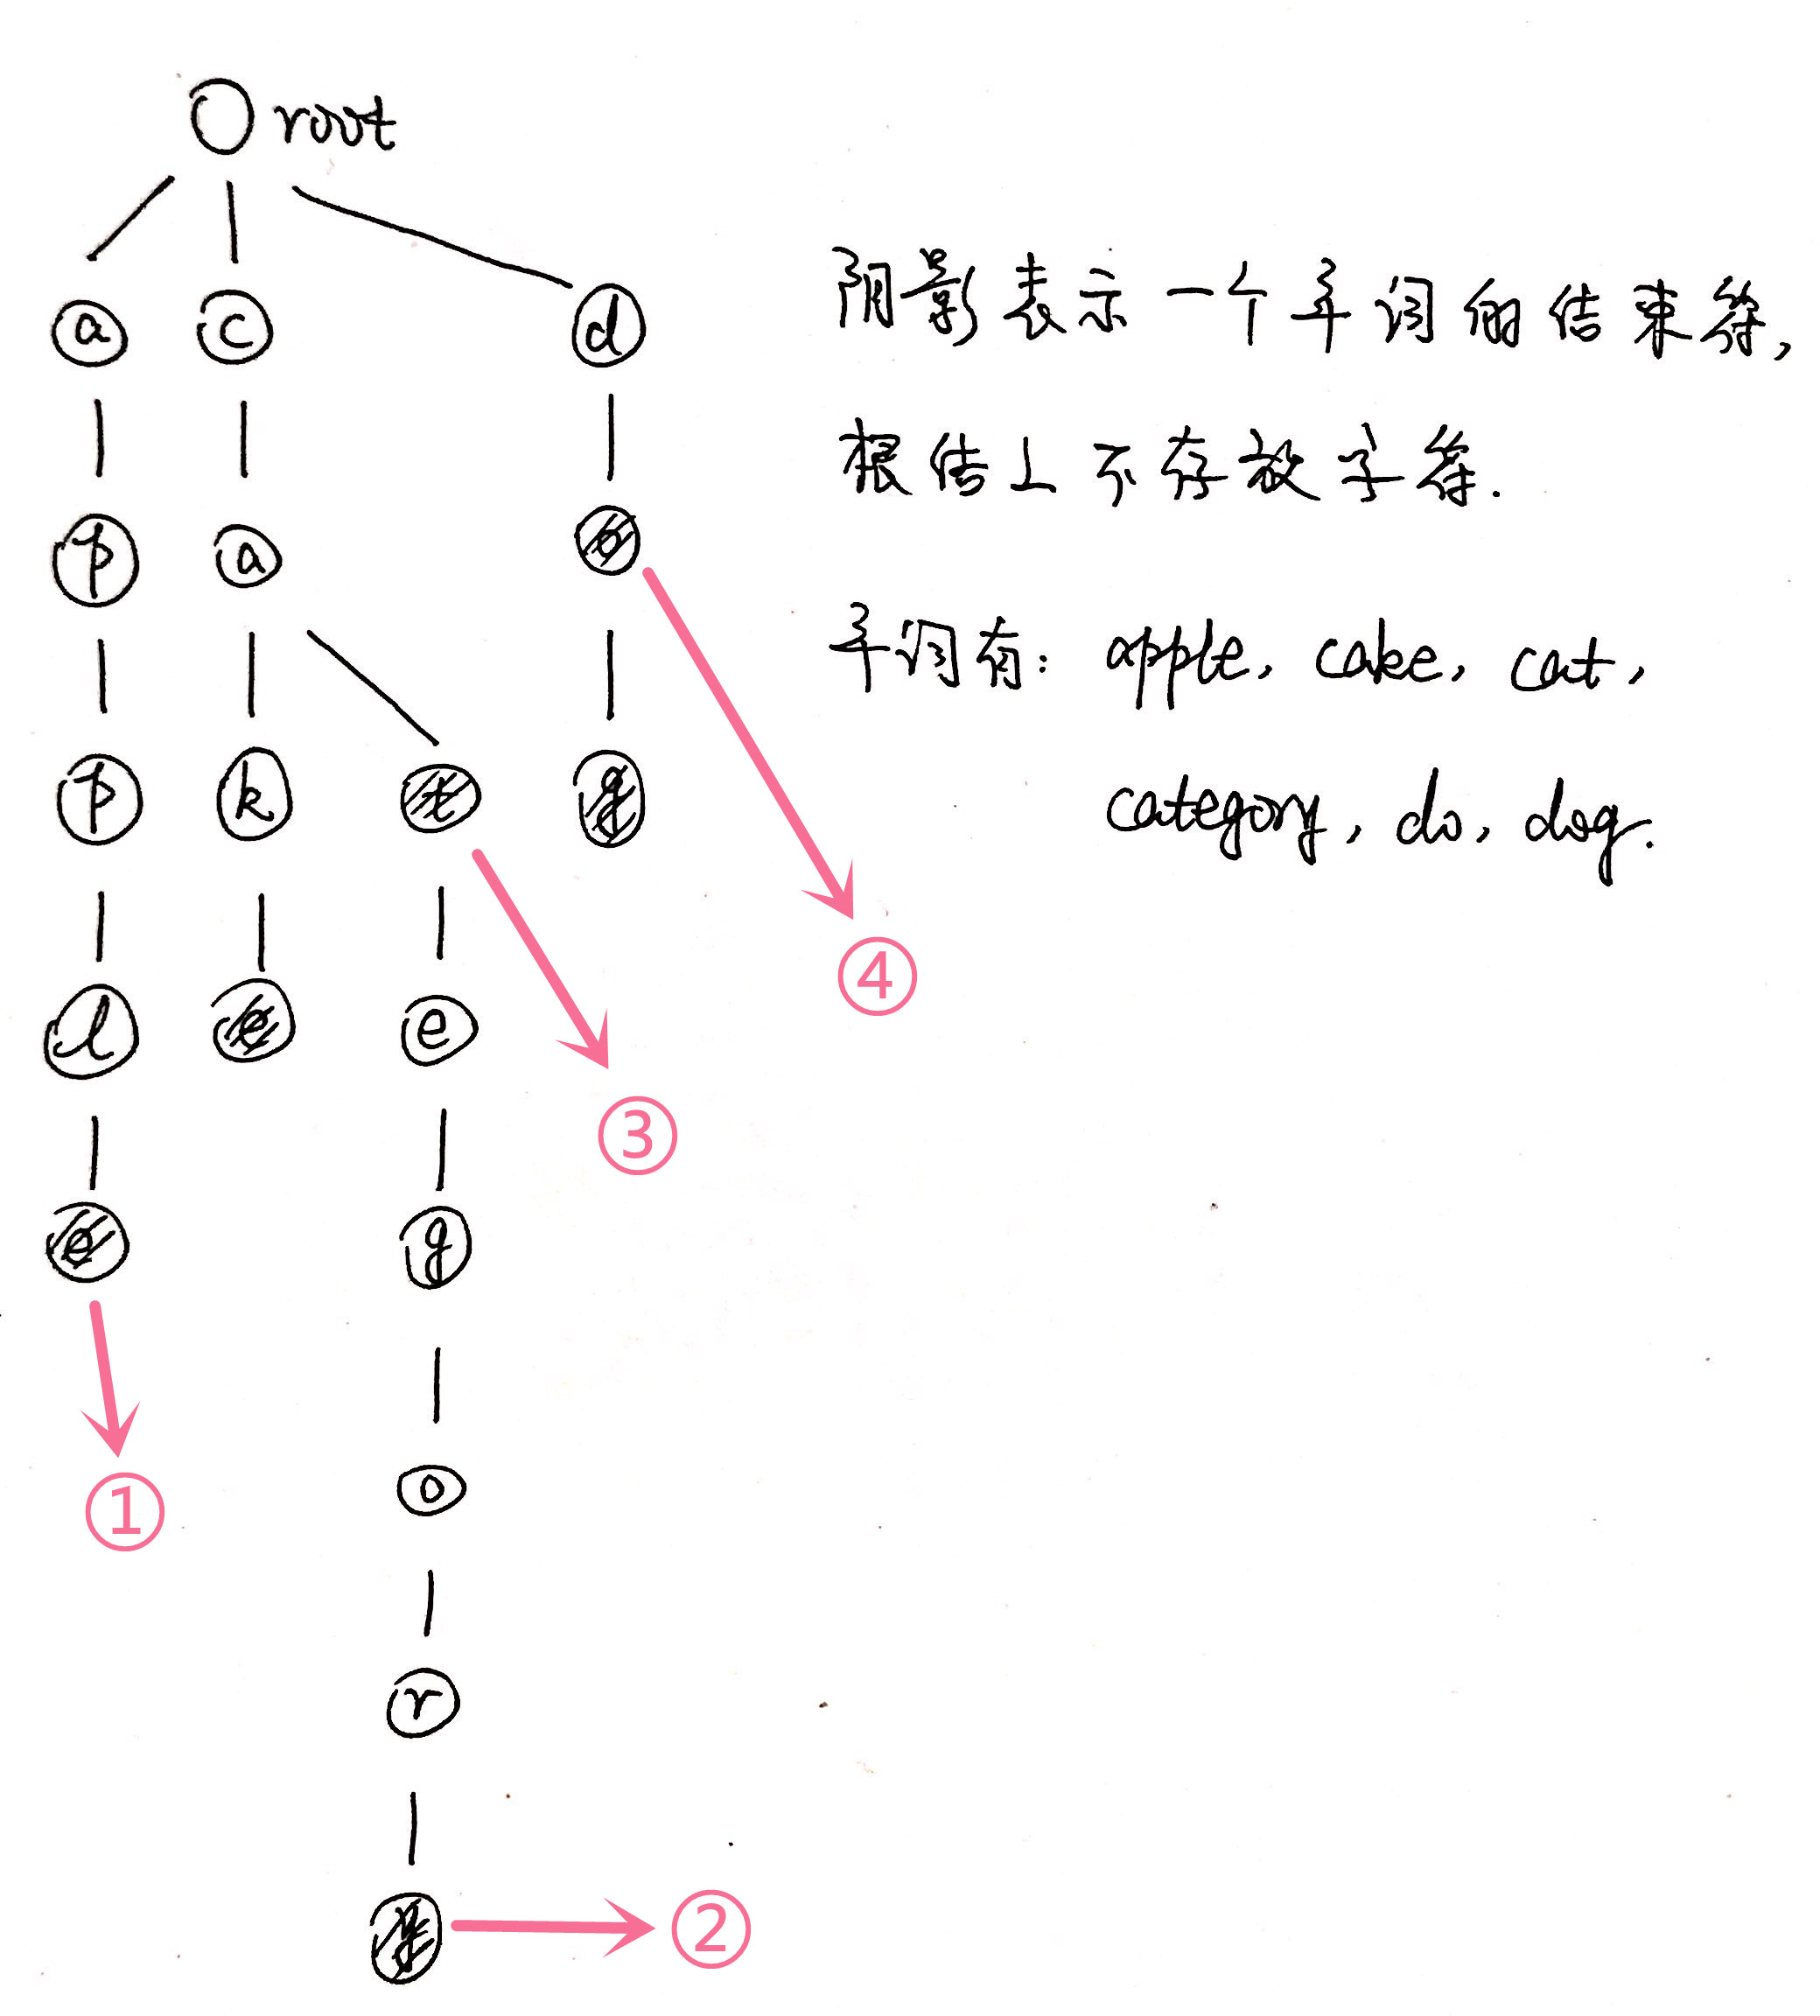 root
a c d
p a o
p k t g
l e e
e g
o
r
y
阴影表示一个单词的结束符,
根结点不存放字符.
单词有: apple, cake, cat,
category, do, dog.
④
③
①
②